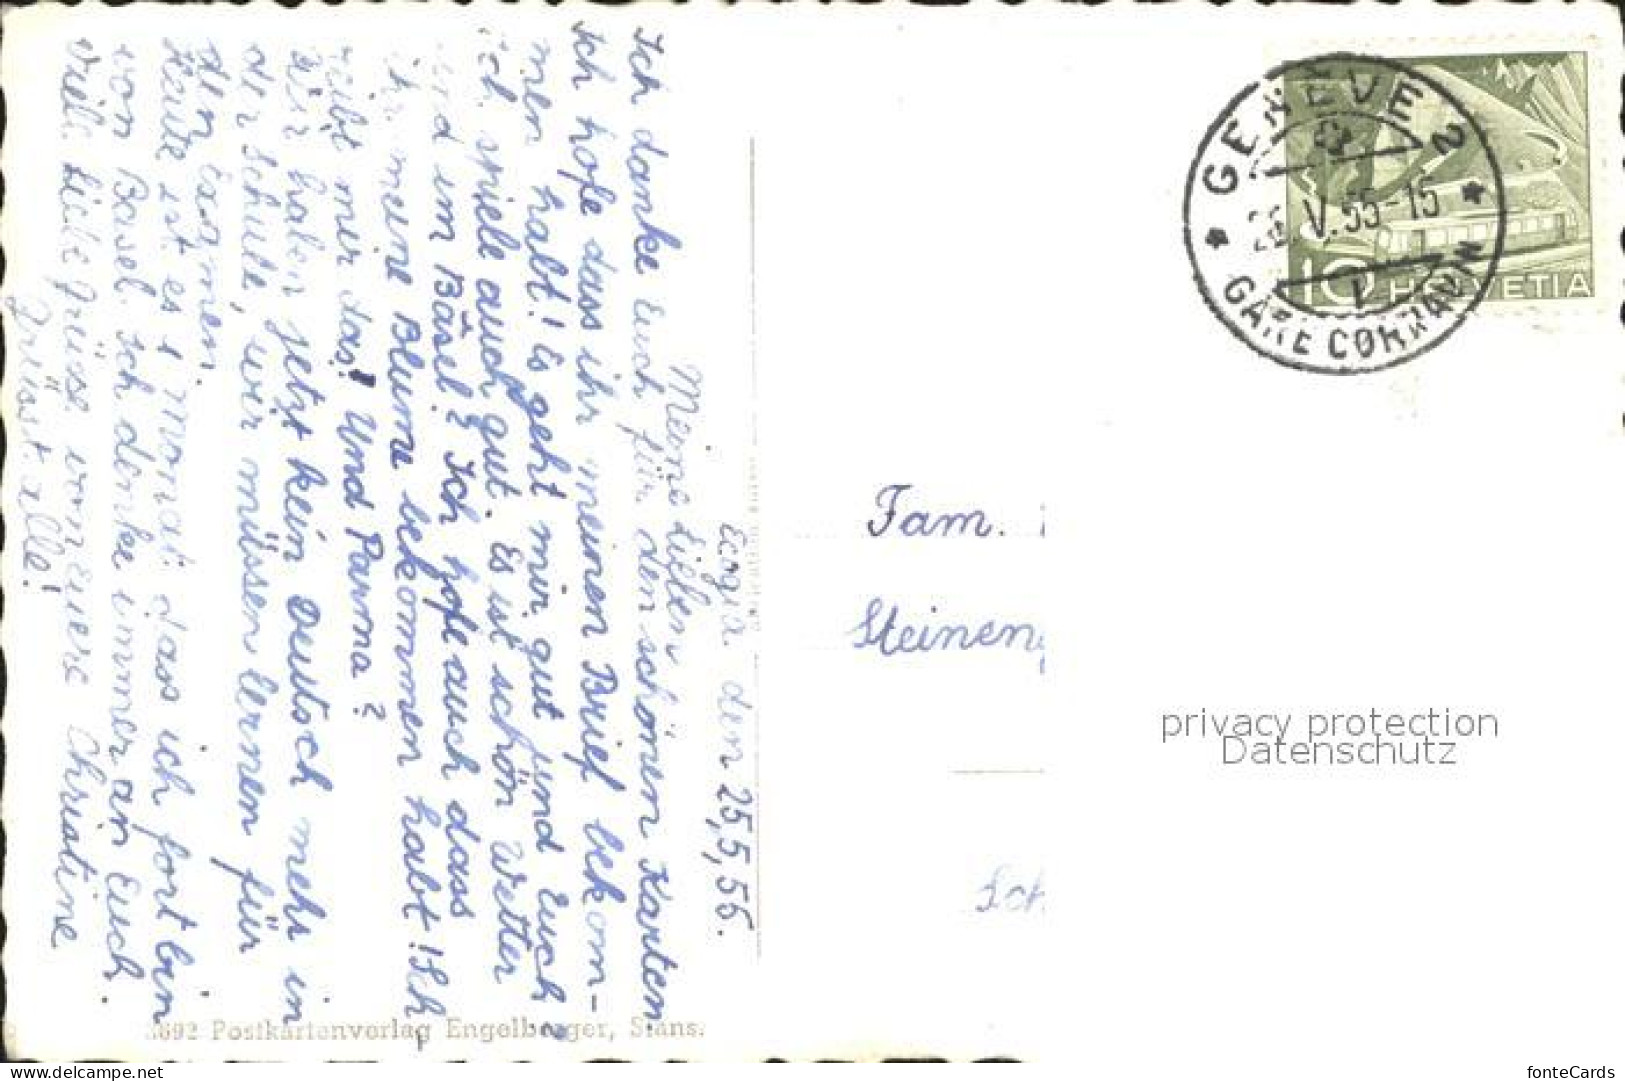 Ecogia den 25,5,55.
Meine Lieben!
Ich danke Euch für den schönen Karten
Ich hofe dass ihr meinen Brief bekom-
men habt! Es geht mir gut und Euch?
ich spiele auch gut. Es ist schön Wetter
und im Basel? Ich hofe auch dass
ihr meine Blume bekommen habt! Ich
mir das! Und Parma?
wir haben jetzt kein Deutsch mehr in
der Schule, wir müssen lernen für
den Examen.
Heute ist es 1 Monat dass ich fort bin
von Basel. Ich denke immer an Euch.
viele liebe grüsse von Euere Christine
Grüsst alle!
3692 Postkartenverlag Engelberger, Stans.
GENÈVE 2
V.55-15
GARE CORNAVIN
10 HELVETIA
Fam.
Steinen
Sch
privacy protection
Datenschutz
www.delcampe.net
fonteCards